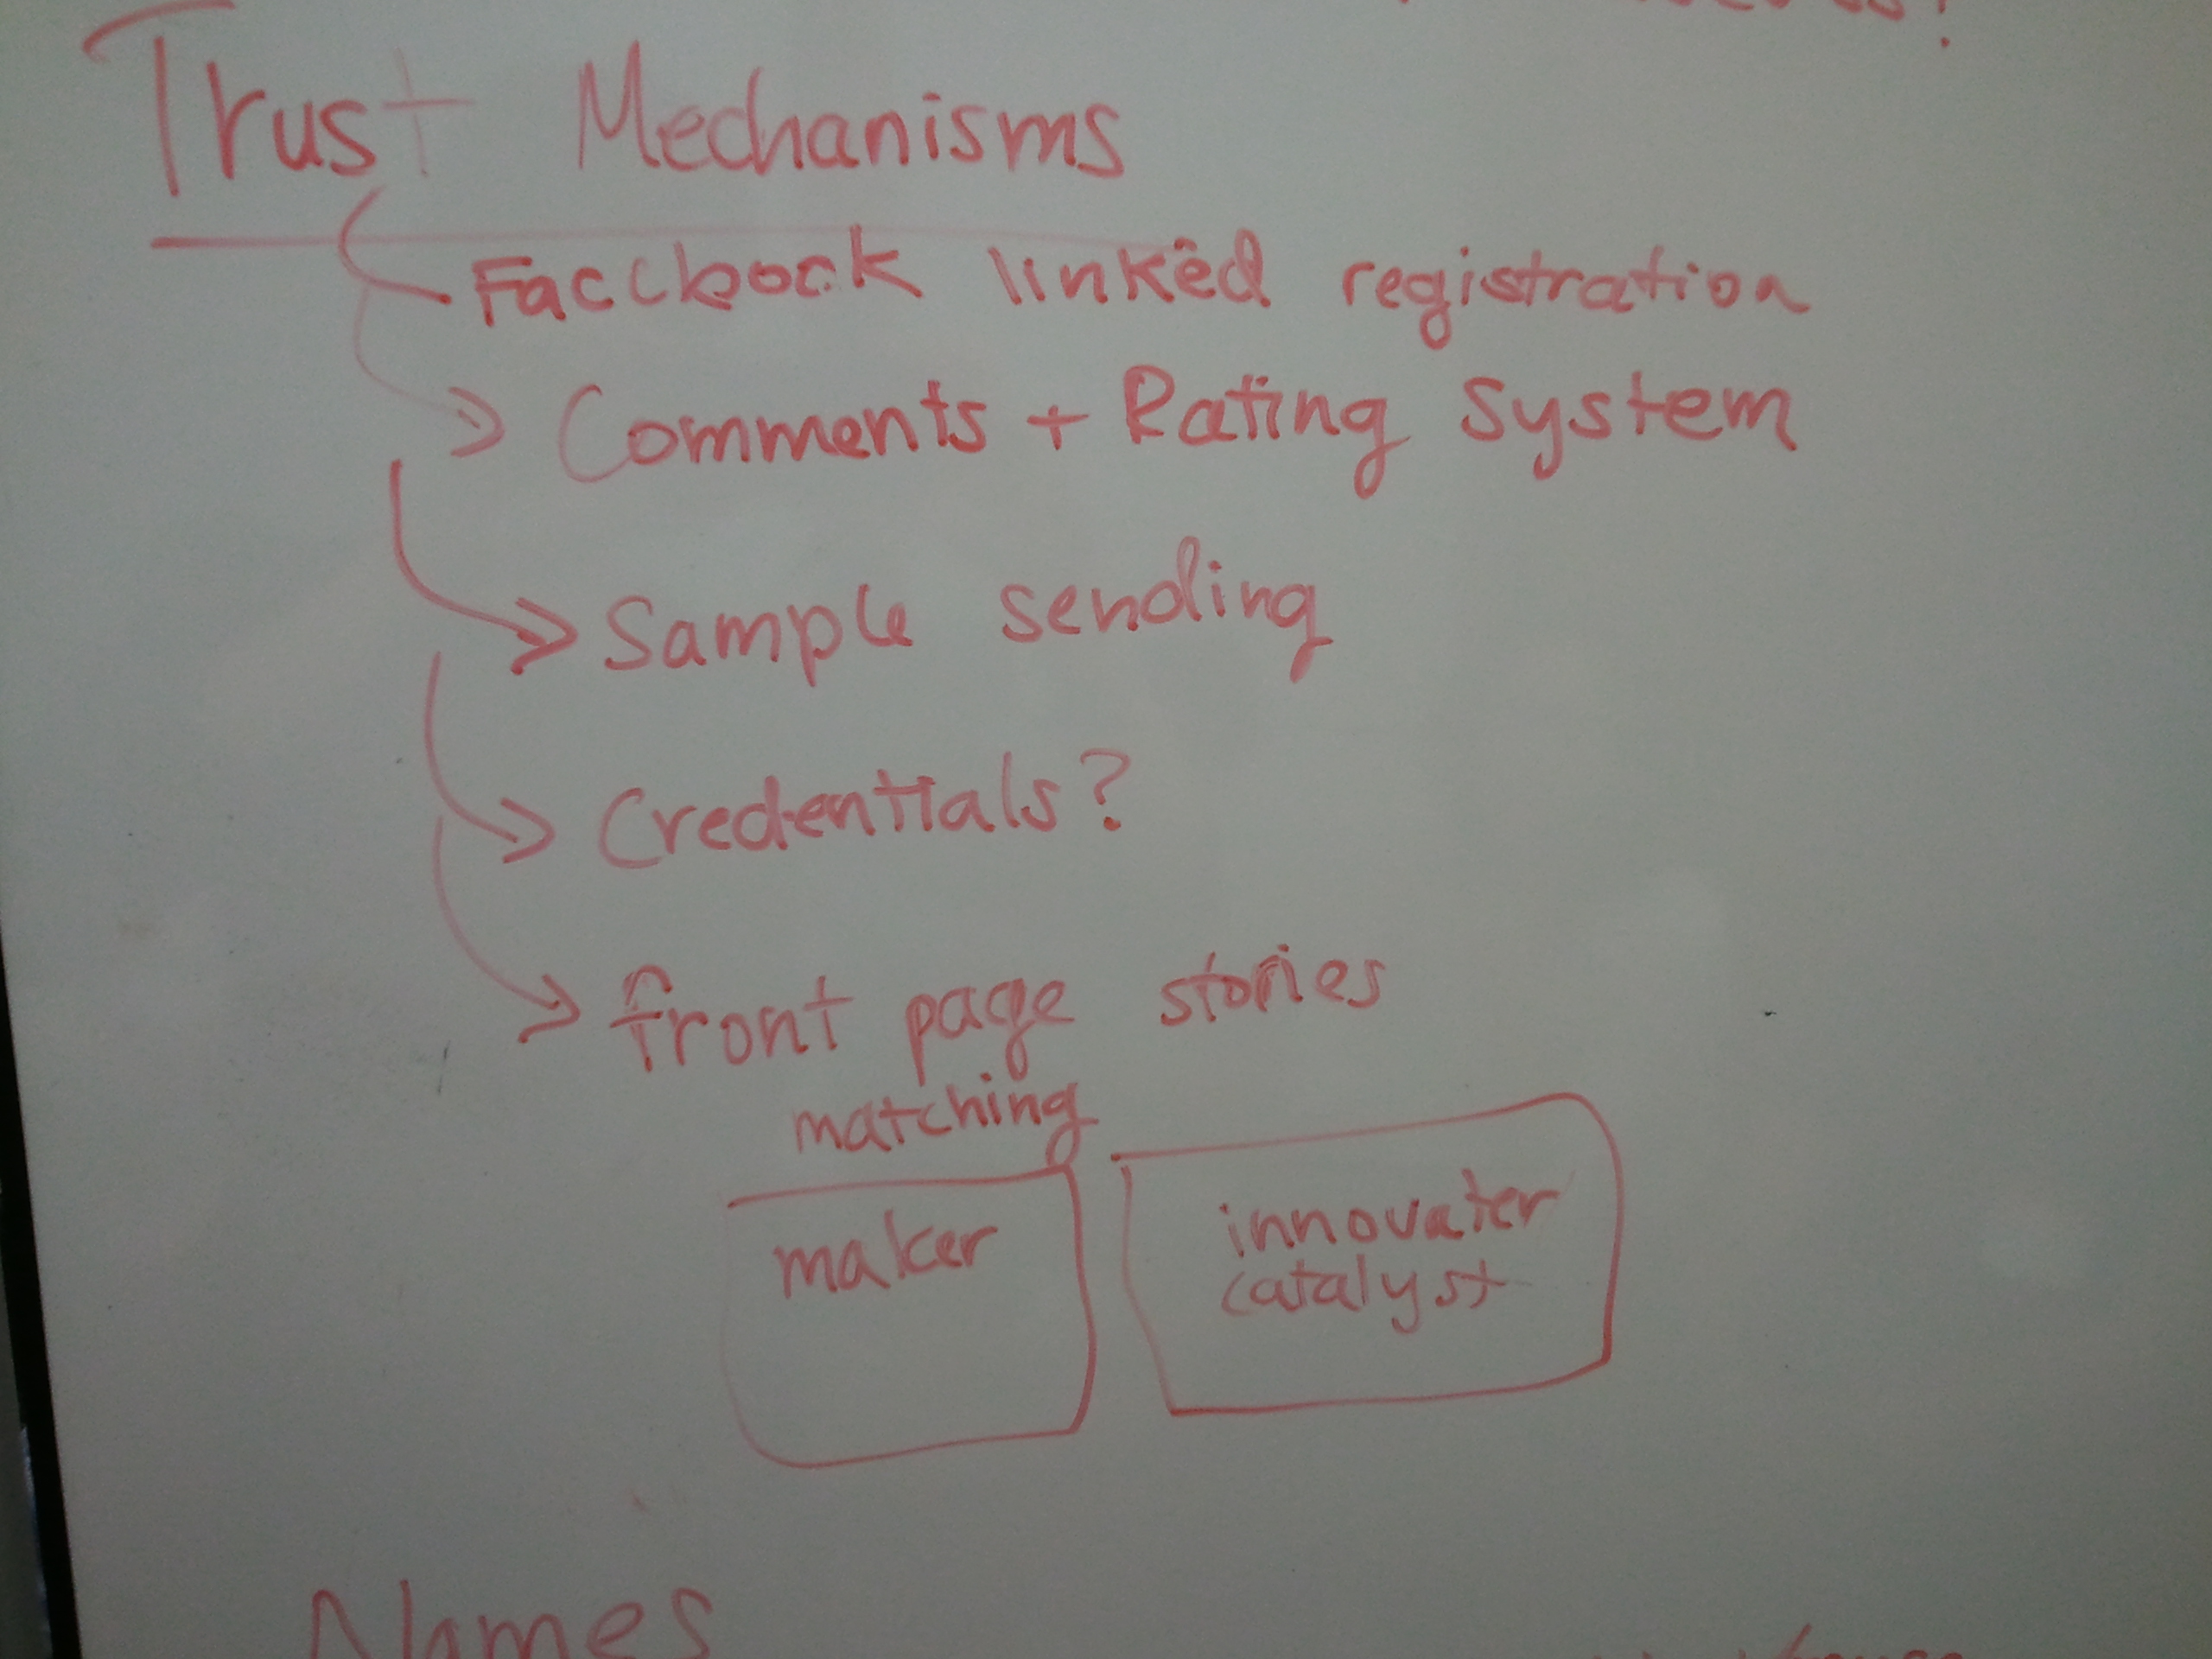 Trust Mechanisms
Facebook linked registration
Comments + Rating System
Sample sending
Credentials?
front page stories
matching
maker
innovater
catalyst
Names